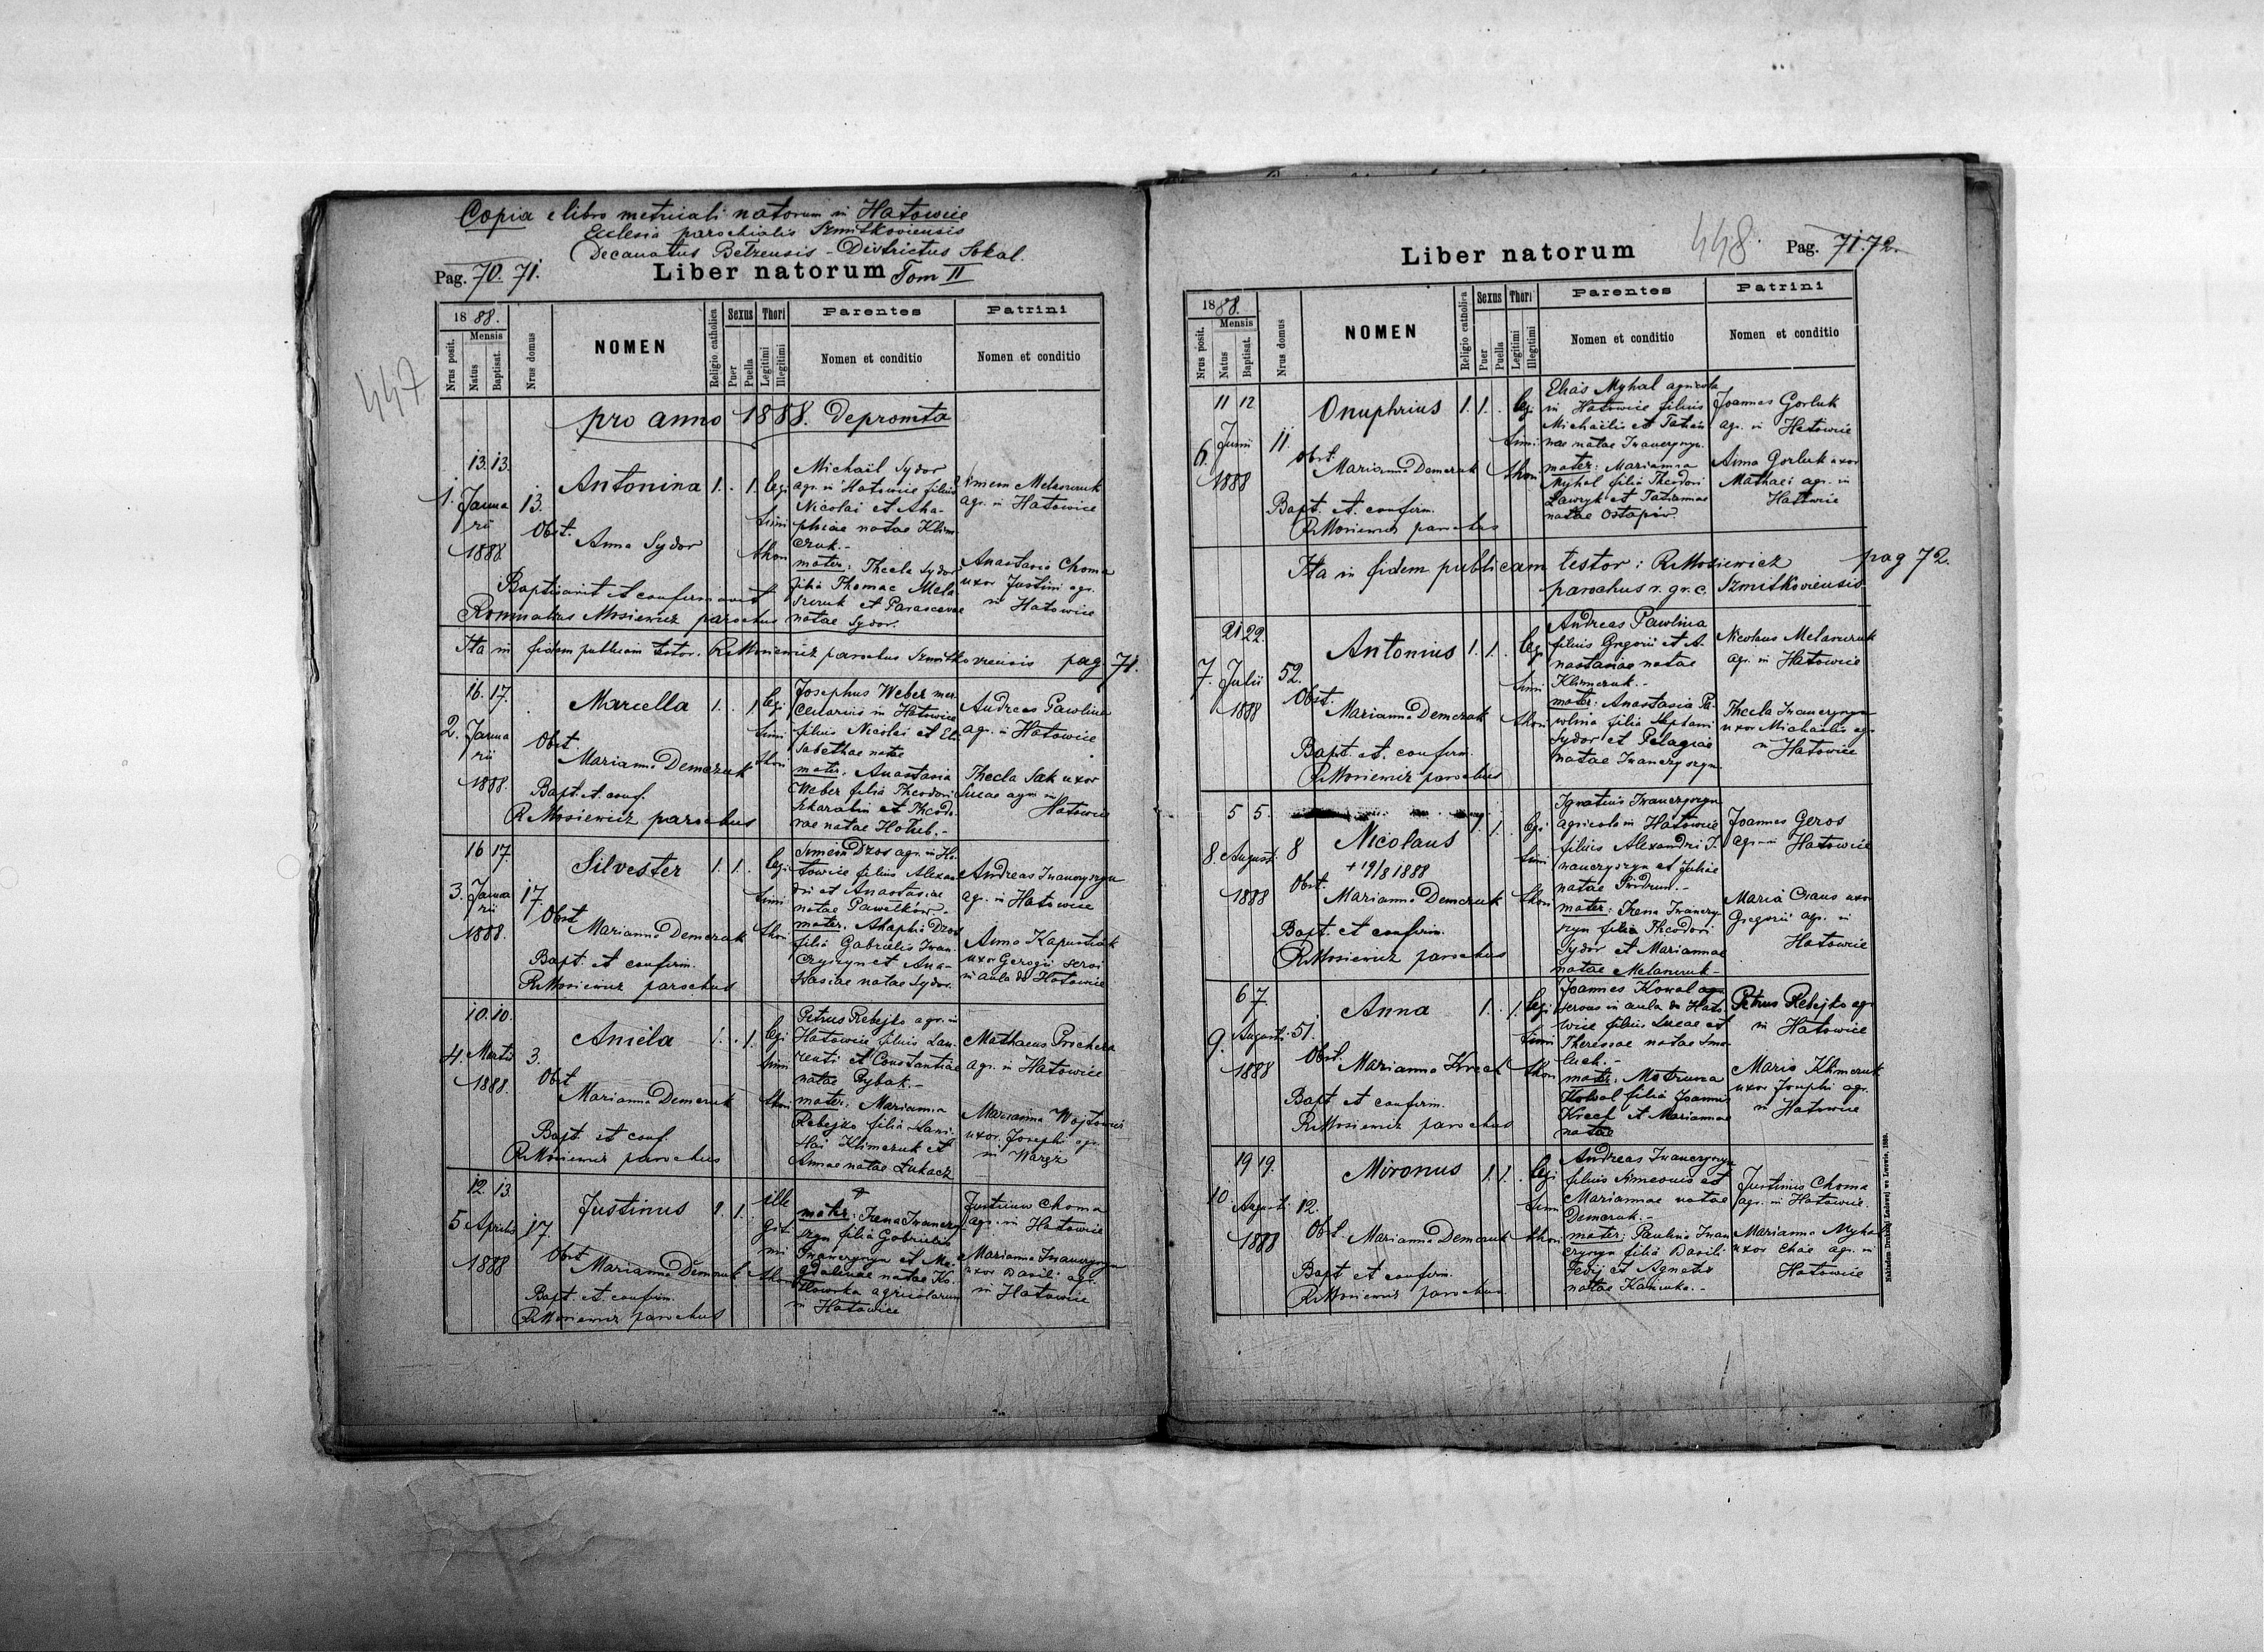 Copia e libro metricali natorum in Hatowice
Ecclesia parochialis Szmitkoviensis
Decanatus Betzensis - Districtus Sokal.
Pag. 70. 71.
Liber natorum Tom II
447
1888.
Mensis
Nrus posit.
Natus
Baptisat.
Nrus domus
NOMEN
Religio catholica
Sexus
Puer
Puella
Thori
Legitimi
Illegitimi
Parentes
Nomen et conditio
Patrini
Nomen et conditio
pro anno 1888. depromta
1.
13. 13.
Janua
rii
1888
13.
Antonina
1. . 1.
legi
timi
thori
Obst.
Anna Sydor
Baptisavit et confirmavit
Romualdus Mosiewicz parochus
Michaël Sydor
agr. in Hatowice filius
Nicolai et Aha-
phiae natae Klim
czuk.-
mater: Thecla Sydor
filia Thomae Mela
szczuk et Parascevae
natae Sydor.
agr. in Hatowice
Anastasia Choma
uxor Justini agr.
in Hatowice
Ita in fidem publicam testor. RMosiewicz parochus Szmitkoviensis pag 71.
2.
16. 17.
Janua
rii
1888.
Marcella
1. . 1.
legi
timi
thori
Obst.
Marianna Demczuk
Bapt. et conf.
RMosiewicz parochus
Josephus Weber mer
cenarius in Hatowice
filius Nicolai et Eli
sabethae natae
mater. Anastasia
Weber filia Theodori
et Theodo
rae natae Holub.-
Andreas Pawlina
agr. in Hatowice
Thecla Sak uxor
Lucae agr. in
Hatowice
3.
16 17.
Janua
rii
1888.
17.
Silvester
1. 1. .
legi
timi
thori
Obst
Marianna Demczuk
Bapt. et confirm.
RMosiewicz parochus
Simeon Dzos agr. in Ha
towice filius Alexan
dri et Anastasiae
natae Pawelków.-
mater. Ahaphia Dzos
filia Gabrielis Iwan.
czyszyn et Ana-
stasiae natae Sydor.
Andreas Iwanczyszyn
agr. in Hatowice
Anna Kapustiak
uxor Georgii servi
in aula de Hatowice
4.
10. 10.
Martii
1888.
3.
Aniela
1. . 1.
legi
timi
thori
Obst
Marianna Demczuk
Bapt. et conf.
RMosiewicz parochus
Petrus Rebejko agr. in
Hatowice filius Lau-
renti et Constantiae
natae Rybak.-
mater: Marianna
Rebejko filia
Klimczuk et
Annae natae Łukacz
Mathaeus Prochera
agr. in Hatowice
Marianna Wojtowicz
uxor Josephi agr.
in Waręż
5
12. 13.
Aprilis
1888
17.
Justinus
1. 1.
ille
giti
mi
thori
Obst
Marianna Demczuk
Bapt. et confirm.
RMosiewicz parochus
mater: Irena Iwanczy
szyn filia Gabrielis
Iwanczyszyn et Ma-
gdalenae natae
agricolarum
in Hatowice
Justinus Choma
agr. in Hatowice
Marianna Iwanczyszyn
uxor Basili agr.
in Hatowice
Liber natorum
448.
Pag. 71. 72.
1888.
Mensis
Nrus posit.
Natus
Baptisat.
Nrus domus
NOMEN
Religio catholica
Sexus
Puer
Puella
Thori
Legitimi
Illegitimi
Parentes
Nomen et conditio
Patrini
Nomen et conditio
6.
11 12
Junii
1888
11
Onuphrius
1. 1. .
legi
timi
thori
Obst.
Marianna Demczuk
Bapt. et. confirm.
RMosiewicz parochus
Elias Myhal agricola
in Hatowice filius
Michaëlis et Tatian
nae natae Iwanczyszyn.
mater: Marianna
Myhal filia Theodori
Ławryk et Tatiannae
natae Ostapiw.
Joannes Gorluk
agr. in Hatowice
Anna Gorluk uxor
Mathaei agr. in
Hatowice
Ita in fidem publicam testor: RMosiewicz pag 72.
parochus r. gr. c. Szmitkoviensis
7.
21 22.
Julii
1888
52.
Antonius
1. 1. .
legi
timi
thori
Obst.
Marianna Demczuk
Bapt. et. confirm.
RMosiewicz parochus
Andreas Pawlina
filius Gregorii et A.
nastasiae natae
Klimczuk.-
mater: Anastasia Pa
wlina filia Stephani
Sydor et Pelagiae
natae Iwanczyszyn.
Nicolaus Melanczuk
agr. in Hatowice
Thecla Iwanczyszyn
uxor Michaëlis agr.
in Hatowice
8.
5 5.
August.
1888
8
Nicolaus
1. 1. .
legi
timi
thori
+ 19/8 1888
Obst.
Marianna Demczuk
Bapt. et confirm.
RMosiewicz parochus
Ignatius Iwanczyszyn
agricola in Hatowice
filius Alexandri I.
wanczyszyn et Juliae
natae
mater: Irena Iwanczy
szyn filia Theodori
Sydor et Mariannae
natae Melanczuk.-
Joannes Geros
agr. in Hatowice
Maria uxor
Gregorii agr. in
Hatowice
9.
6 7.
Augusti
1888
51.
Anna
1. . 1.
legi
timi
thori
Obst.
Marianna Krech
Bapt. et confirm.
RMosiewicz parochus
Joannes Kowal
servus in aula de Hato
wice filius Lucae et
Theresae natae
mater. Matruna
Kowal filia Joannis
Krech et Mariannae
natae
Petrus Rebejko agr
in Hatowice
Maria Klimczuk
uxor Josephi agr.
in Hatowice
10.
19 19.
Augusti
1888
12.
Mironus
1. 1. .
legi
timi
thori
Obst.
Marianna Demczuk
Bapt et confirm.
RMosiewicz parochus
Andreas Iwanczyszyn
filius Simeonis et
Mariannae natae
Demczuk.-
mater: Paulina Iwan
czyszyn filia Basili
Fedij et Agnetis
natae
Justinus Choma
agr. in Hatowice.
Marianna Myhal
uxor Eliae agr. in
Hatowice
Nakładem Drukarni Ludowej we Lwowie.